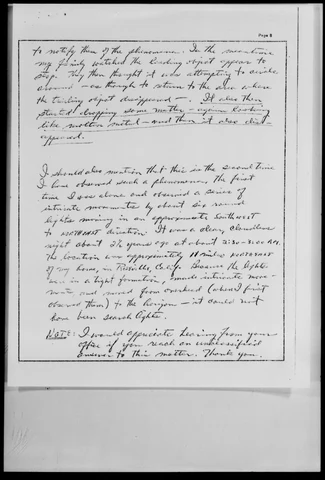 Page 3
to notify them of the phenomenon. In the meantime
my family watched the leading object appear to
stop. They then thought it was attempting to circle
around — as though to return to the area where
the trailing object disappeared —. It also then
started dropping some matter — again looking
like molten metal — and then it also dis-
appeared.
I should also mention that this is the second time
I have observed such a phenomenon. The first
time I was alone and observed a series of
intricate movements by about six round
lights moving in an approximate SOUTHWEST
to NORTHEAST direction. It was a clear, cloudless
night about 2½ years ago at about
the location was approximately 11 miles NORTHEAST
of my home, in Calif. Because the lights
were in a tight formation, made intricate move-
ments and moved from overhead (where I first
observed them) to the horizon — it could not
have been search lights.
NOTE: I would appreciate hearing from your
office if you reach an unclassified
answer to this matter. Thank you.